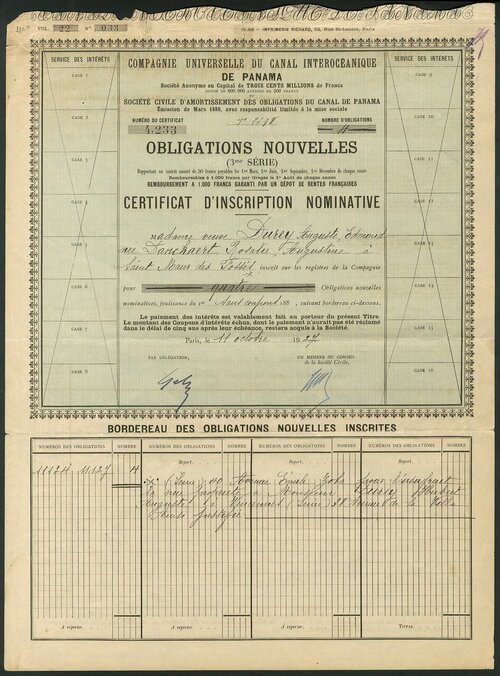 VOL. 22 N° 033
IMPRIMERIE RICHARD, 92, Rue St-Lazare, Paris
SERVICE DES INTERÊTS
SERVICE DES INTERÊTS
COMPAGNIE UNIVERSELLE DU CANAL INTEROCÉANIQUE
DE PANAMA
Société Anonyme au Capital de TROIS CENTS MILLIONS de Francs
DIVISÉ EN 600 000 ACTIONS DE 500 FRANCS
SOCIÉTÉ CIVILE D'AMORTISSEMENT DES OBLIGATIONS DU CANAL DE PANAMA
Émission de Mars 1888, avec responsabilité limitée à la mise sociale
NUMÉRO DU CERTIFICAT
NOMBRE D'OBLIGATIONS
4.233
4
OBLIGATIONS NOUVELLES
(3me SÉRIE)
Rapportant un intérêt annuel de 30 francs payables les 1er Mars, 1er Juin, 1er Septembre, 1er Décembre de chaque année
Remboursables à 1.000 francs par tirages le 1er Août de chaque année
REMBOURSEMENT A 1.000 FRANCS GARANTI PAR UN DÉPOT DE RENTES FRANÇAISES
CERTIFICAT D'INSCRIPTION NOMINATIVE
Madame veuve Durey Auguste Edmond
née Danchaert Rosalie Augustine à
Saint Maur des Fossés inscrit sur les registres de la Compagnie
pour quatre Obligations nouvelles
nominatives, jouissance du 1er 188 , suivant bordereau ci-dessous.
Le paiement des intérêts est valablement fait au porteur du présent Titre.
Le montant des Coupons d'intérêts échus, dont le paiement n'aurait pas été réclamé
dans le délai de cinq ans après leur échéance, restera acquis à la Société.
Paris, le 11 octobre 1927
PAR DÉLÉGATION,
UN MEMBRE DU CONSEIL
de la Société Civile,
CASE 1
CASE 2
CASE 3
CASE 4
CASE 5
CASE 6
CASE 7
CASE 8
CASE 9
CASE 10
CASE 11
CASE 12
CASE 13
CASE 14
CASE 15
CASE 16
BORDEREAU DES OBLIGATIONS NOUVELLES INSCRITES
NUMÉROS DES OBLIGATIONS NOMBRE NUMÉROS DES OBLIGATIONS NOMBRE NUMÉROS DES OBLIGATIONS NOMBRE NUMÉROS DES OBLIGATIONS NOMBRE
Report Report Report
11124 11127 4
(Seine) 40 Avenue Emile Zola pour l'usufruit
la nue propriété à Monsieur Durey Hubert
Auguste à Vincennes (Seine)
A reporter A reporter A reporter TOTAL